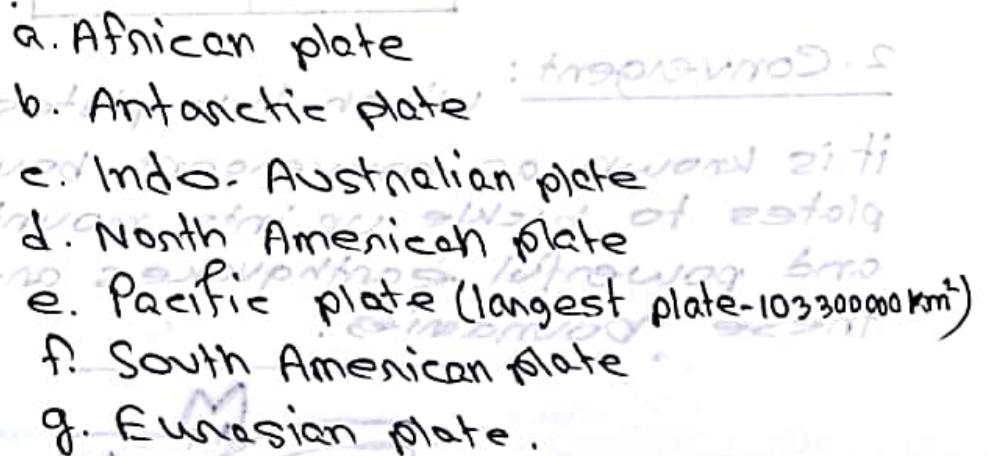 a. African plate
b. Antarctic plate
c. Indo. Australian plate
d. North American plate
e. Pacific plate (largest plate-103300000 Km²)
f. South American plate
g. Eurasian plate.